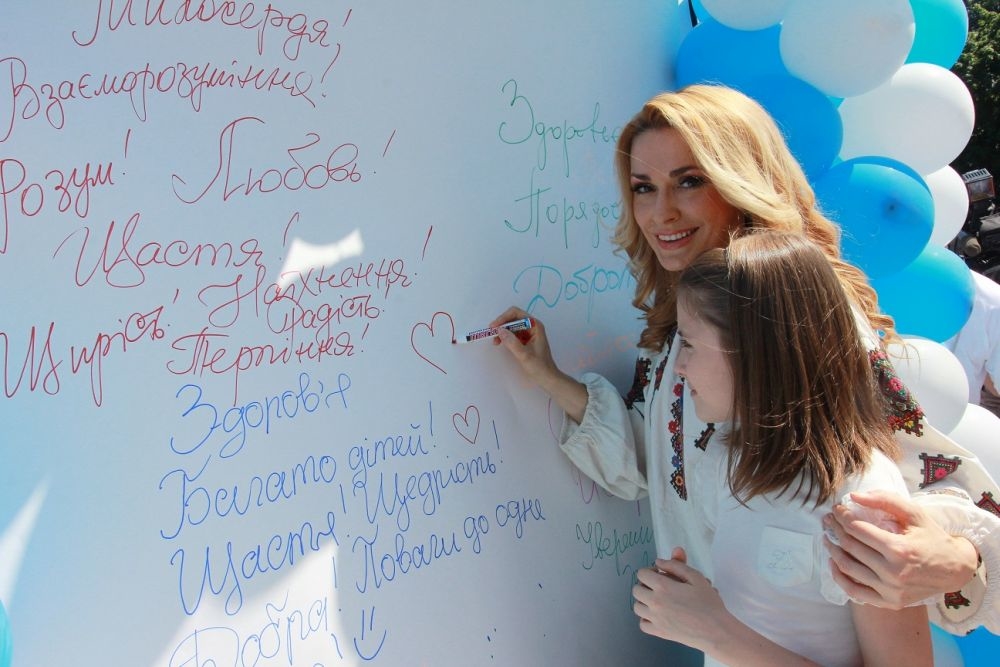 Милосердя!
Взаєморозуміння!
Розум! Любовь!
Щастя!
Натхнення!
Щирість! Радість!
Терпіння!
Здоров'я
Багато дітей!
Щастя! Щедрість!
Добра! Поваги до одне
Здоровье
Порядо
Доброт